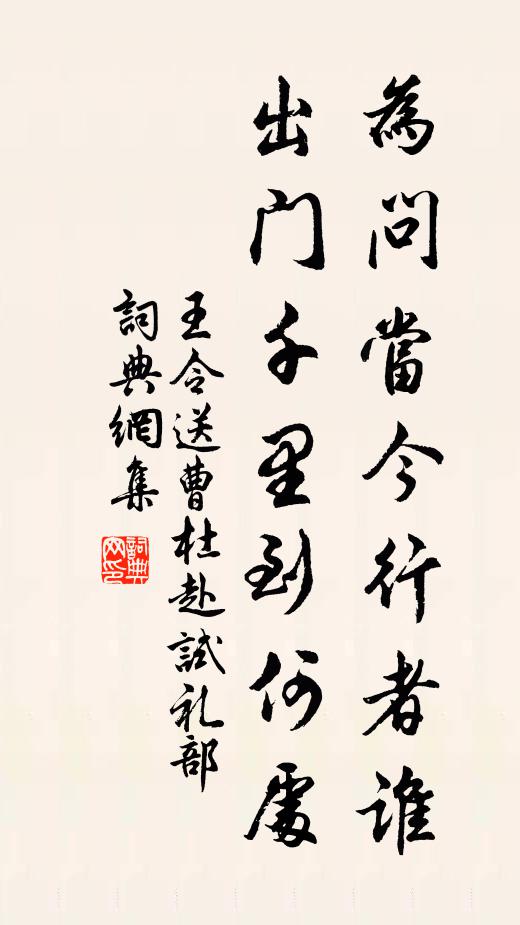 為問當今行者誰
出門千里到何處
王令送曹杜赴試礼部
詞典網集
詞典網印